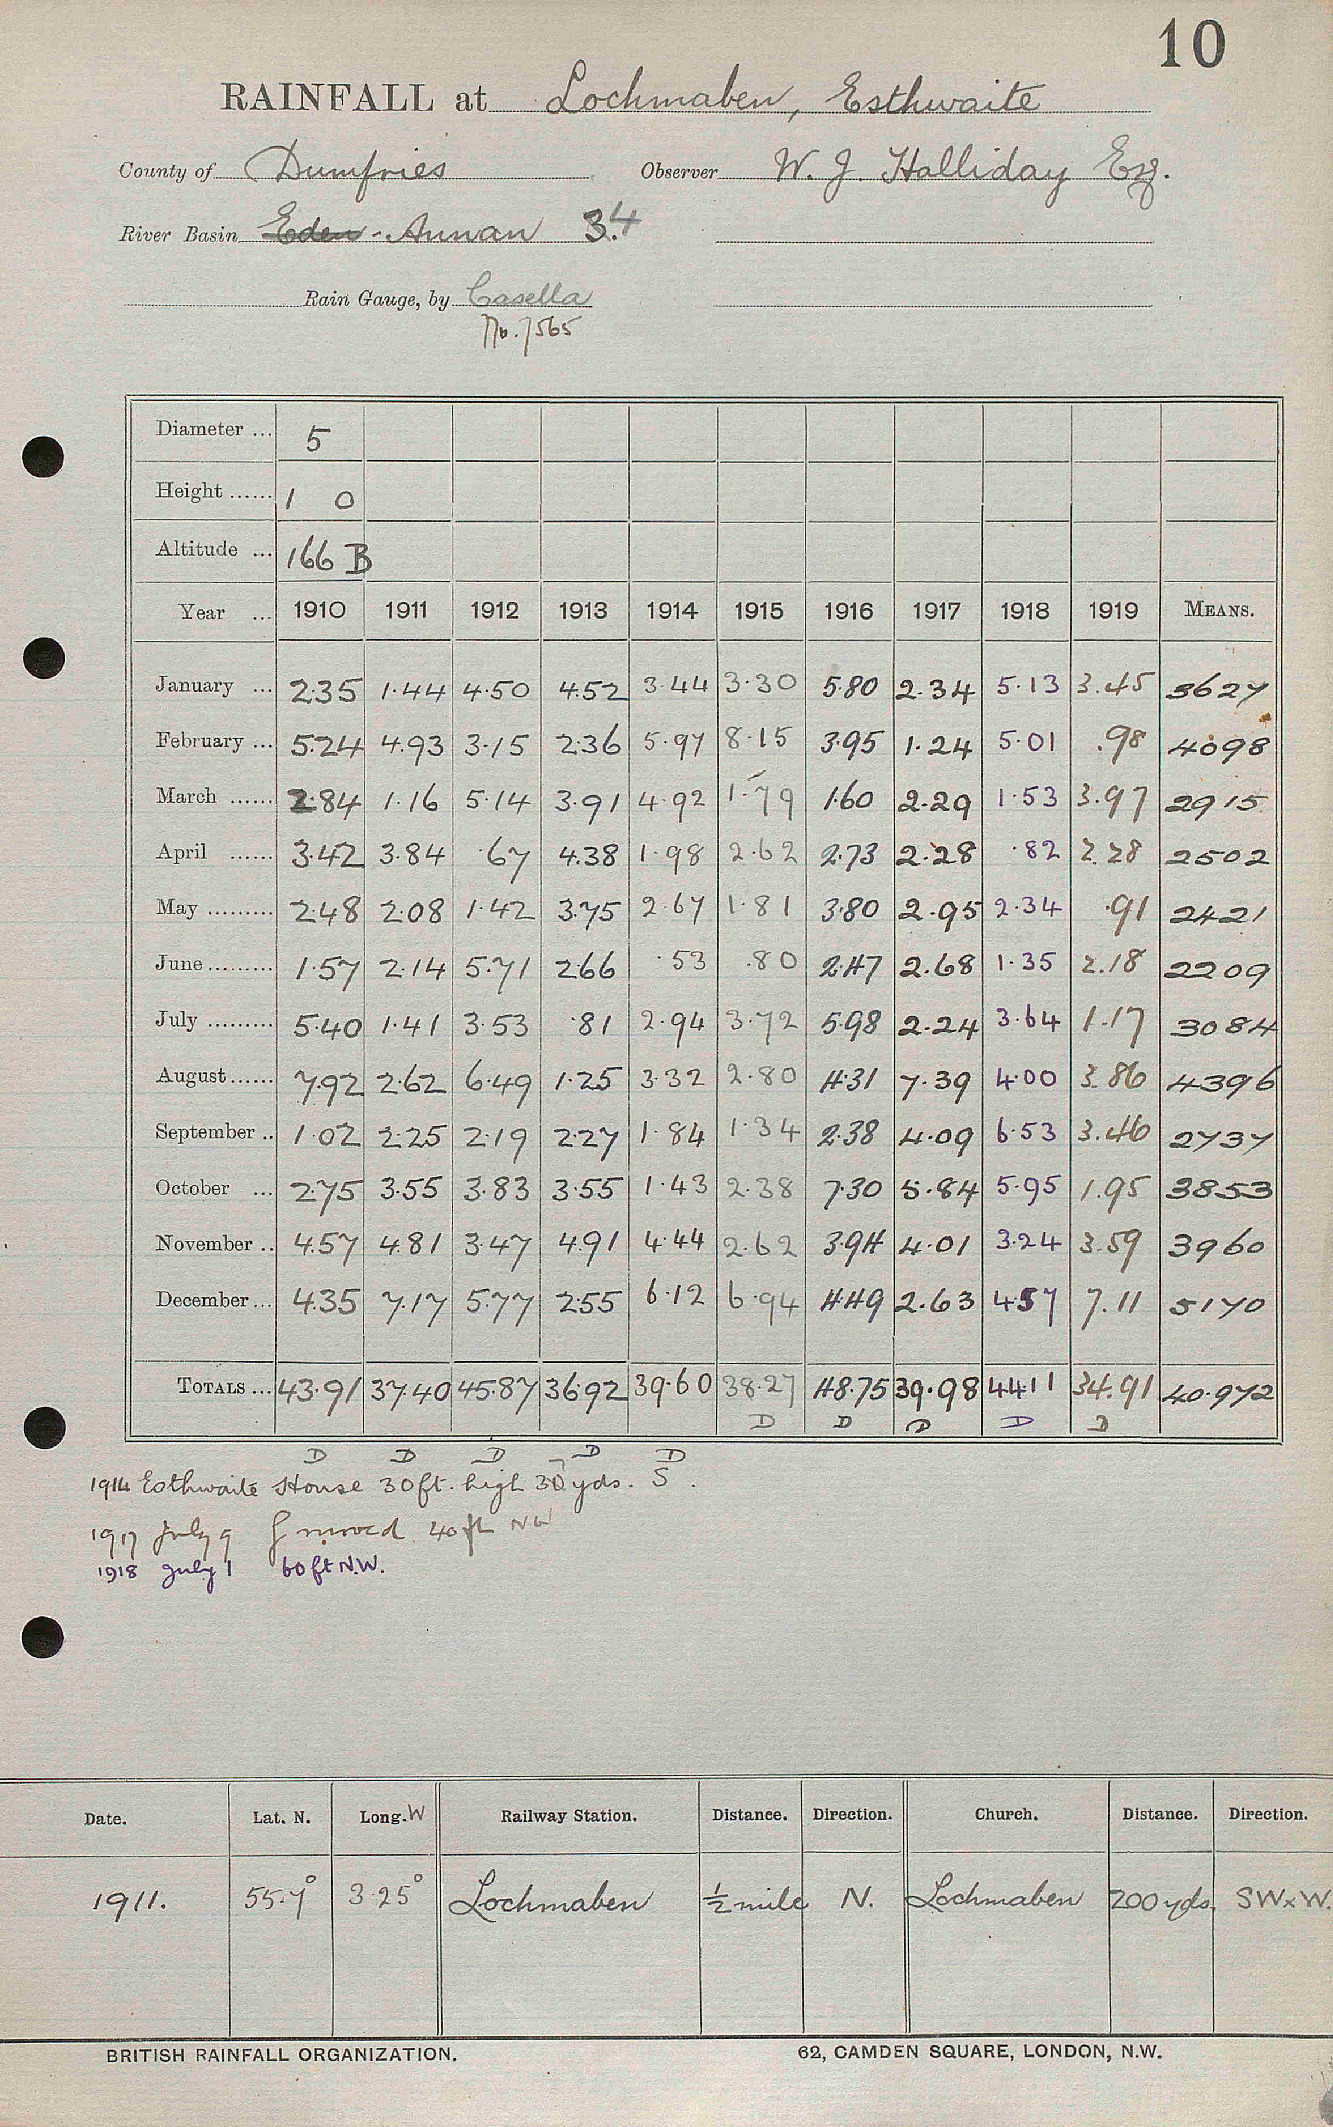 10
RAINFALL at Lochmaben, Esthwaite
County of Dumfries Observer W. J. Halliday Esq.
River Basin Eden - Annan 3.4
Rain Gauge, by Casella
No. 7565
Diameter ... 5
Height ...... 1 0
Altitude ... 166 B
Year ... 1910 1911 1912 1913 1914 1915 1916 1917 1918 1919 MEANS.
January ... 2.35 1.44 4.50 4.52 3.44 3.30 5.80 2.34 5.13 3.45 3627
February ... 5.24 4.93 3.15 2.36 5.97 8.15 3.95 1.24 5.01 .98 4098
March ...... 2.84 1.16 5.14 3.91 4.92 1.79 1.60 2.29 1.53 3.97 2915
April ...... 3.42 3.84 .67 4.38 1.98 2.62 2.73 2.28 .82 2.28 2502
May ......... 2.48 2.08 1.42 3.75 2.67 1.81 3.80 2.95 2.34 .91 2421
June ......... 1.57 2.14 5.71 2.66 .53 .80 2.47 2.68 1.35 2.18 2209
July ......... 5.40 1.41 3.53 .81 2.94 3.72 5.98 2.24 3.64 1.17 3084
August ...... 7.92 2.62 6.49 1.25 3.32 2.80 4.31 7.39 4.00 3.86 4396
September .. 1.02 2.25 2.19 2.27 1.84 1.34 2.38 4.09 6.53 3.46 2737
October ... 2.75 3.55 3.83 3.55 1.43 2.38 7.30 5.84 5.95 1.95 3853
November .. 4.57 4.81 3.47 4.91 4.44 2.62 3.94 4.01 3.24 3.59 3960
December ... 4.35 7.17 5.77 2.55 6.12 6.94 4.49 2.63 4.57 7.11 5170
TOTALS ... 43.91 37.40 45.87 36.92 39.60 38.27 48.75 39.98 44.11 34.91 40.972
D D D D D
D D D D D
1914 Esthwaite House 30 ft. high 30 yds. S.
1917 July 9 G moved 40 ft NW
1918 July 1 60 ft N.W.
Date. Lat. N. Long. W Railway Station. Distance. Direction. Church. Distance. Direction.
1911. 55.7° 3.25° Lochmaben ½ mile N. Lochmaben 200 yds. SWxW.
BRITISH RAINFALL ORGANIZATION. 62, CAMDEN SQUARE, LONDON, N.W.